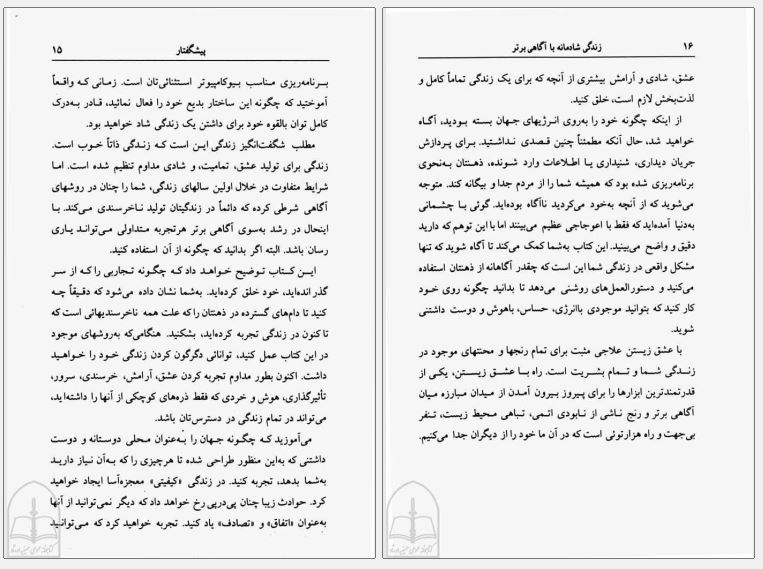 پیشگفتار ۱۵
برنامه‌ریزی مناسب بیوکامپیوتر استثنائی‌تان است. زمانی که واقعاً
آموختید که چگونه این ساختار بدیع خود را فعال نمائید، قادر به‌درک
کامل توان بالقوه خود برای داشتن یک زندگی شاد خواهید بود.
مطلب شگفت‌انگیز زندگی این است که زندگی ذاتاً خوب است.
زندگی برای تولید عشق، تمامیت، و شادی مداوم تنظیم شده است. اما
شرایط متفاوت در خلال اولین سالهای زندگی، شما را چنان در روشهای
آگاهی شرطی کرده که دائماً در زندگیتان تولید ناخرسندی می‌کند. با
اینحال در رشد به‌سوی آگاهی برتر هرتجربه متداولی می‌تواند یاری
رسان باشد. البته اگر بدانید که چگونه از آن استفاده کنید.
این کتاب توضیح خواهد داد که چگونه تجاربی را که از سر
گذرانده‌اید، خود خلق کرده‌اید. به‌شما نشان داده می‌شود که دقیقاً چه
کنید تا دام‌های گسترده در ذهنتان را که علت همه ناخرسندیهائی است که
تاکنون در زندگی تجربه کرده‌اید، بشکنید. هنگامی‌که به‌روشهای موجود
در این کتاب عمل کنید، توانائی دگرگون کردن زندگی خود را خواهید
داشت. اکنون بطور مداوم تجربه کردن عشق، آرامش، خرسندی، سرور،
تأثیرگذاری، هوش و خردی که فقط ذره‌های کوچکی از آنها را داشته‌اید،
می‌تواند در تمام زندگی در دسترس‌تان باشد.
می‌آموزید که چگونه جهان را به‌عنوان محلی دوستانه و دوست
داشتنی که به‌این منظور طراحی شده تا هرچیزی را که به‌آن نیاز دارید
به‌شما بدهد، تجربه کنید. در زندگی «کیفیتی» معجزه‌آسا ایجاد خواهید
کرد. حوادث زیبا چنان پی‌درپی رخ خواهد داد که دیگر نمی‌توانید از آنها
به‌عنوان «اتفاق» و «تصادف» یاد کنید. تجربه خواهید کرد که می‌توانید
۱۶ زندگی شادمانه با آگاهی برتر
عشق، شادی و آرامش بیشتری از آنچه که برای یک زندگی تماماً کامل و
لذت‌بخش لازم است، خلق کنید.
از اینکه چگونه خود را به‌روی انرژیهای جهان بسته بودید، آگاه
خواهید شد، حال آنکه مطمئناً چنین قصدی نداشتید. برای پردازش
جریان دیداری، شنیداری یا اطلاعات وارد شونده، ذهنتان به‌نحوی
برنامه‌ریزی شده بود که همیشه شما را از مردم جدا و بیگانه کند. متوجه
می‌شوید که از آنچه به‌خود می‌کردید ناآگاه بوده‌اید. گوئی با چشمانی
به‌دنیا آمده‌اید که فقط با اعوجاجی عظیم می‌بینند اما با این توهم که دارید
دقیق و واضح می‌بینید. این کتاب به‌شما کمک می‌کند تا آگاه شوید که تنها
مشکل واقعی در زندگی شما این است که چقدر آگاهانه از ذهنتان استفاده
می‌کنید و دستورالعمل‌های روشنی می‌دهد تا بدانید چگونه روی خود
کار کنید که بتوانید موجودی باانرژی، حساس، باهوش و دوست داشتنی
شوید.
با عشق زیستن علاجی مثبت برای تمام رنجها و محنتهای موجود در
زندگی شما و تمام بشریت است. راه با عشق زیستن، یکی از
قدرتمندترین ابزارها را برای پیروز بیرون آمدن از میدان مبارزه میان
آگاهی برتر و رنج ناشی از نابودی اتمی، تباهی محیط زیست، تنفر
بی‌جهت و راه هزارتوئی است که در آن ما خود را از دیگران جدا می‌کنیم.